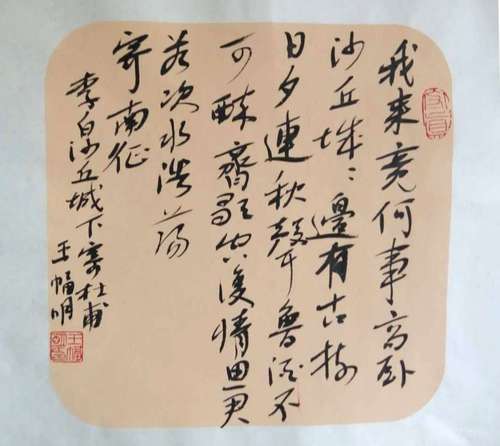 我来竟何事高卧
沙丘城：邊有古樹
日夕連秋聲魯酒不
可醉齊歌空復情思君
若汶水浩蕩
寄南征
李白沙丘城下寄杜甫
王幅明